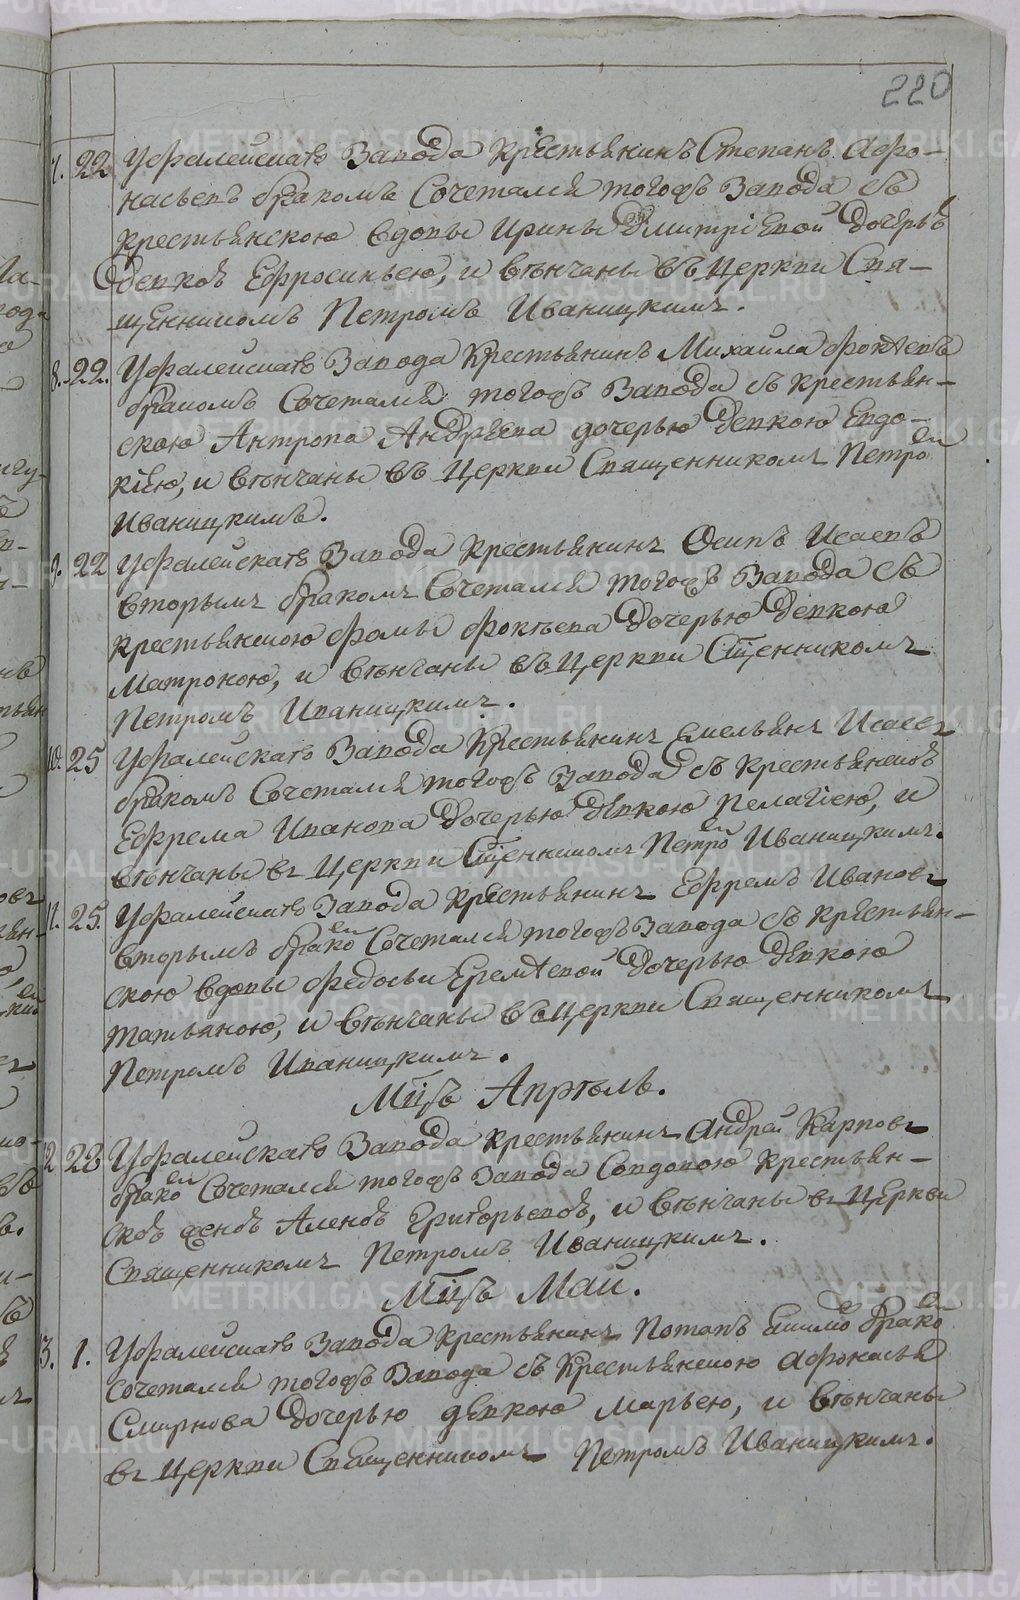 220
7. 22 Уфалейскаго Завода крестьянинъ Степанъ Афо-
насьевъ бракомъ Сочетался тогожъ Завода съ
крестьянскою вдовы Ирины Дмитріевой дочерью
девкою Ефросиньею, и венчаны въ Церкви Свя-
щенникомъ Петромъ Иваницкимъ.
8. 22. Уфалейскаго Завода Крестьянинъ Михайла Фоктевъ
бракомъ Сочетался тогожъ Завода съ крестьян-
скою Антропа Андреева дочерью девкою Евдо-
кіею, и венчаны въ Церкви Священникомъ Петромъ
Иваницкимъ.
9. 22 Уфалейскаго Завода Крестьянинъ Осипъ Исаевъ
вторымъ бракомъ Сочетался тогожъ Завода съ
крестьянскою Фомы Фоктева дочерью девкою
Матроною, и венчаны въ Церкви Сщенникомъ
Петромъ Иваницкимъ.
10. 25 Уфалейскаго Завода Крестьянинъ Емельянъ Исаевъ
бракомъ Сочетался тогожъ Завода съ крестьянской
Ефрема Иванова дочерью девкою Пелагіею, и
венчаны въ Церкви Сщенникомъ Петромъ Иваницкимъ.
11. 25. Уфалейскаго Завода Крестьянинъ Ефремъ Ивановъ
вторымъ бракомъ Сочетался тогожъ Завода съ крестьян-
скою вдовы Федосьи Еремеевой дочерью девкою
Татьяною, и венчаны въ Церкви Священникомъ
Петромъ Иваницкимъ.
Мцъ Апрель.
12 22 Уфалейскаго Завода крестьянинъ Андрей Карповъ
бракомъ Сочетался тогожъ Завода Совдовою крестьян-
ской женой Аленой Григорьевой, и венчаны въ Церкви
Священникомъ Петромъ Иваницкимъ.
Мцъ Май.
3. 1. Уфалейскаго Завода крестьянинъ Потапъ бракомъ
Сочетался тогожъ Завода съ Крестьянскою Афонасья
Смирнова дочерью девкою Марьею, и венчаны
въ Церкви Священникомъ Петромъ Иваницкимъ.